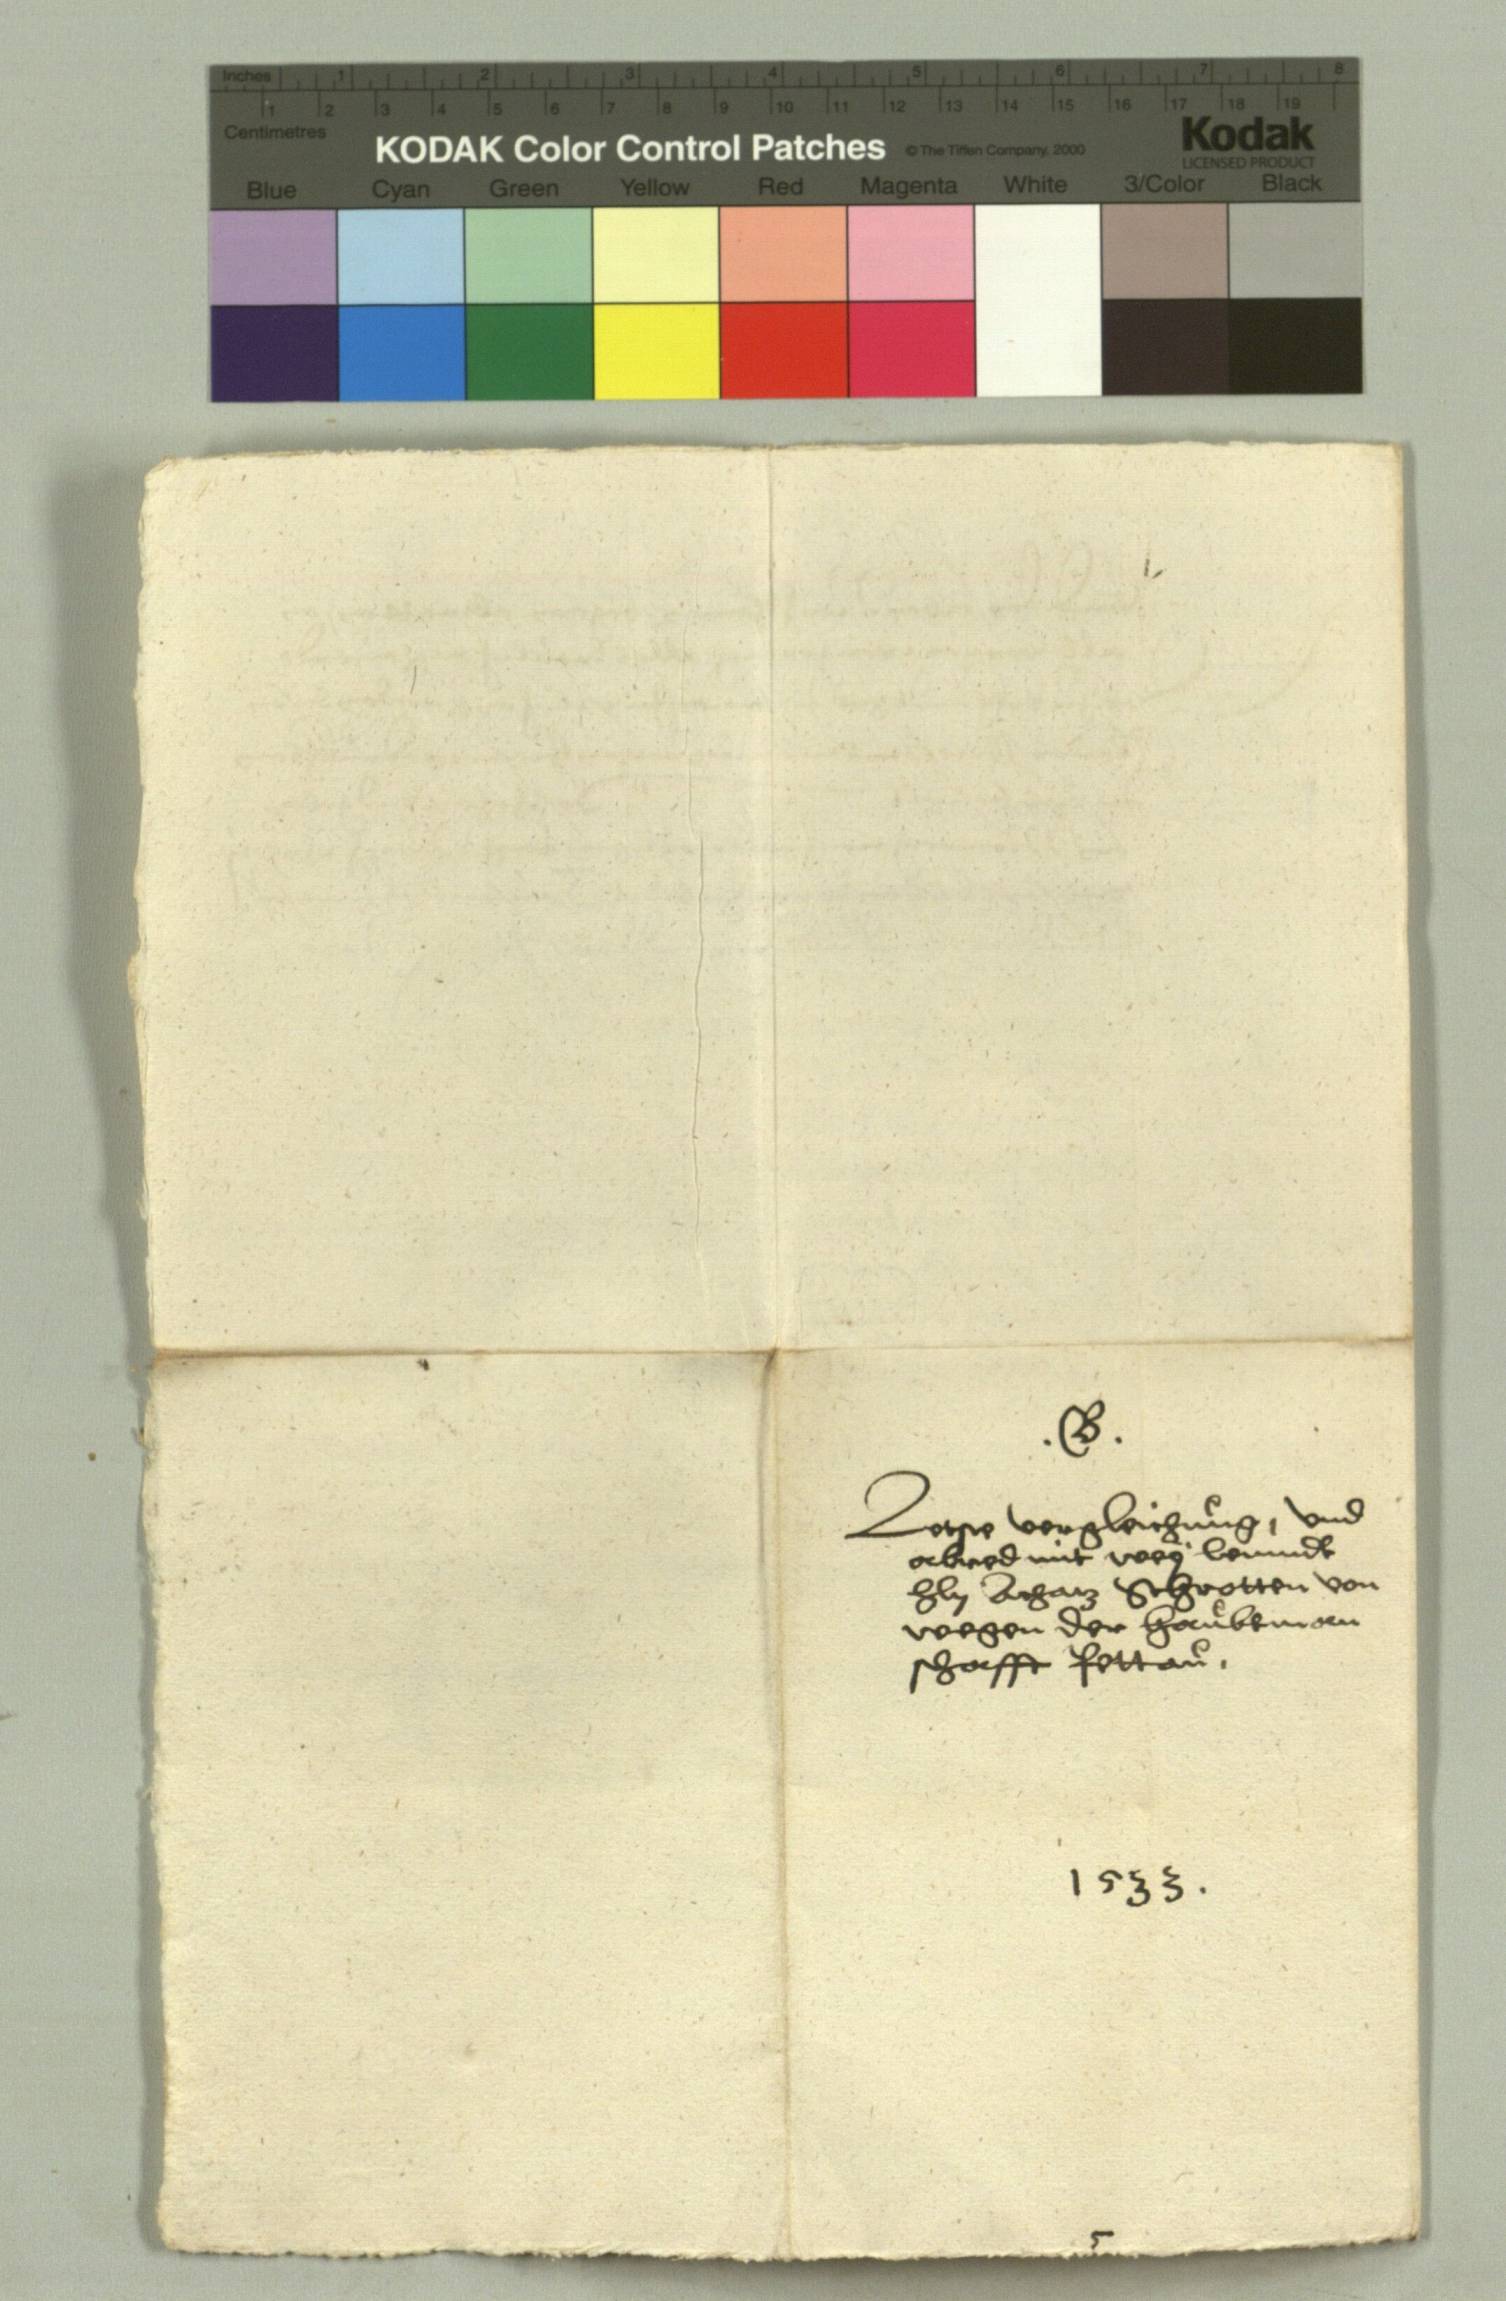 Inches 1 2 3 4 5 6 7 8
1 2 3 4 5 6 7 8 9 10 11 12 13 14 15 16 17 18 19
Centimetres
KODAK Color Control Patches © The Tiffen Company, 2000 Kodak
LICENSED PRODUCT
Blue Cyan Green Yellow Red Magenta White 3/Color Black
.B.
vergleichung, vnd
abred mit weÿ lenndt
Achatz Schrotten von
wegen der haubtman
schafft Pettau.
1533.
5